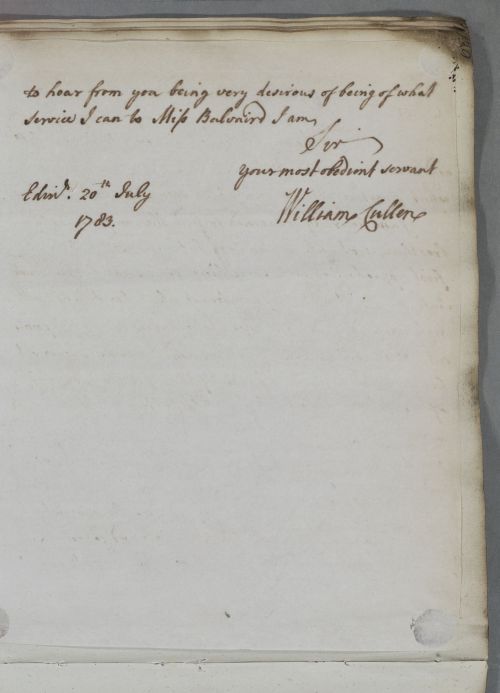 to hear from you being very desirous of being of what
service I can to Miss Balvaird I am
Sir
your most obedient servant
Edinr. 20th July
1783.
William Cullen